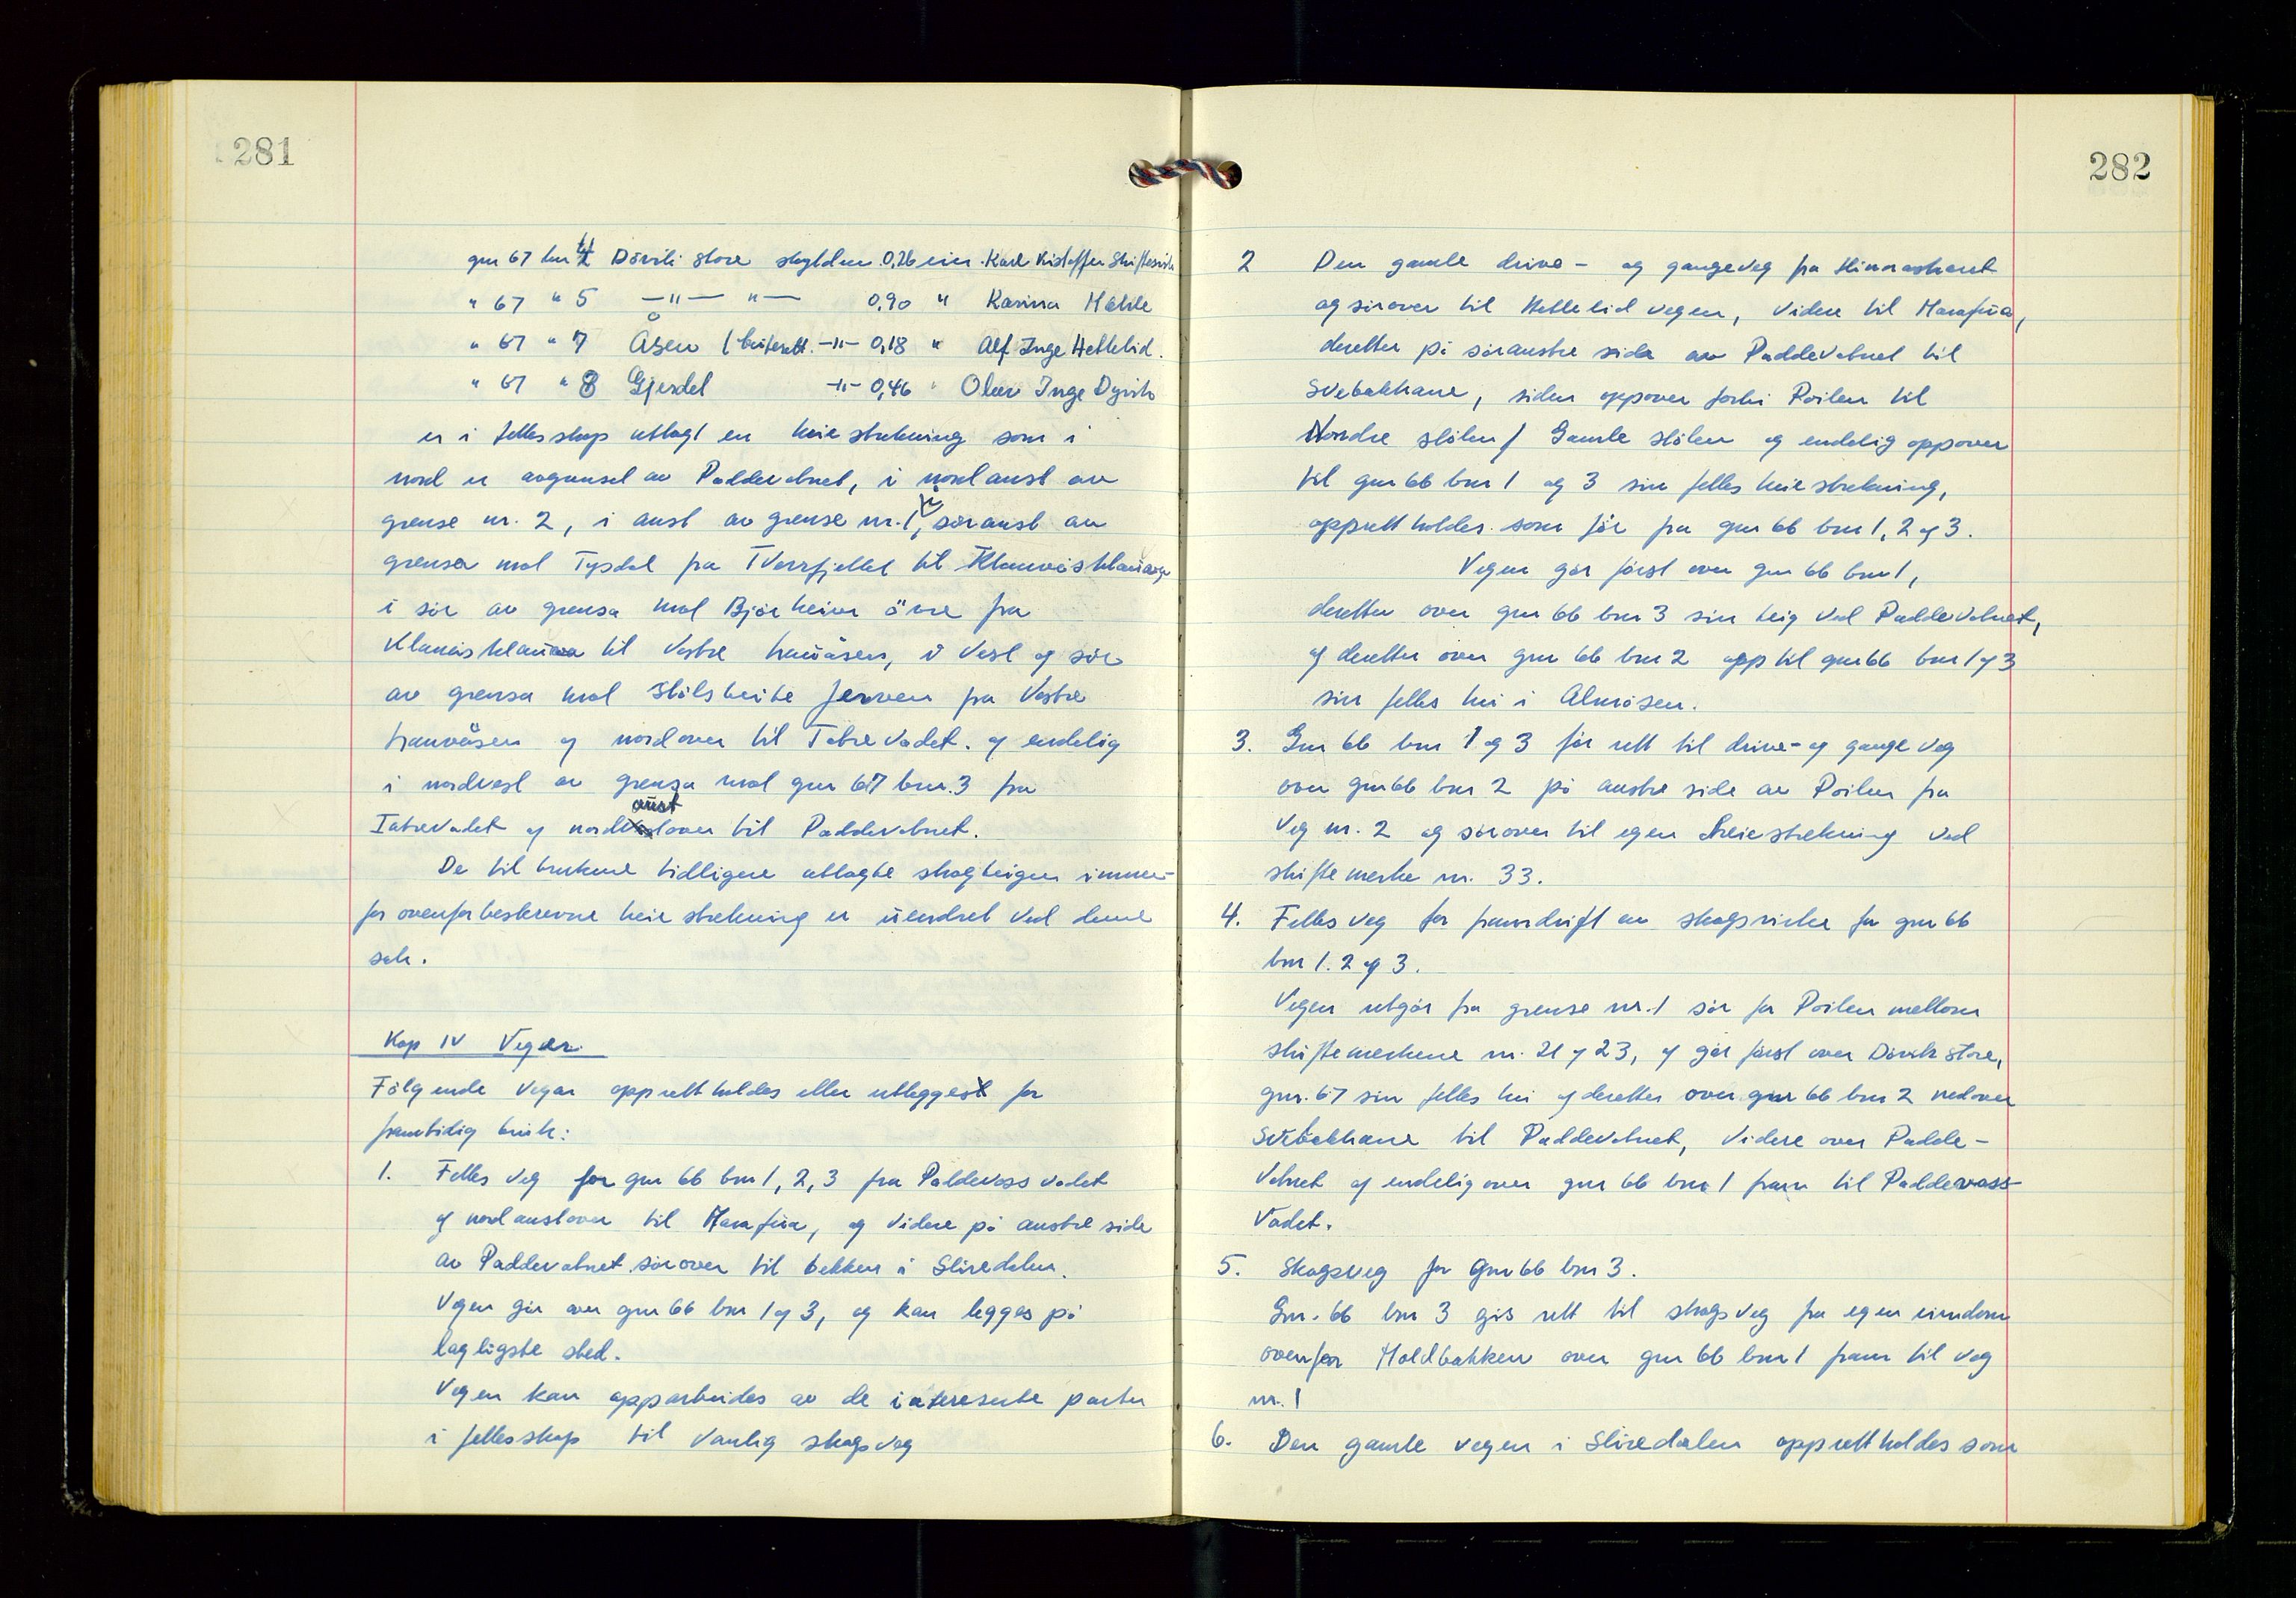 281
gnr 67 bnr 4 Dörvik Store skylden 0,26 eier Karl Kistoffer Skiftesvik
" 67 " 5 —"— "— 0,90 " Karina Hähle
" 67 " 7 Åsen (beiterett. -"- 0,18 " Alf Inge Hettelid.
" 67 " 8 Gjesdel -"- 0,46 " Olav Inge Dyvik
er i fellesskap utlagt en heiestrekning som i
nord er avgrenset av Paddevatnet, i nordaust av
grense nr. 2, i aust av grense nr. 1, i söraust av
grensa mot Tysdal fra Tverrfjellet til Klauvåsklauva
i sör av grensa mot Björheim övre fra
Klauvåsklauva til Vestre trauvåsen, i Vest og sör
av grensa mot Stölsbeite Jerven fra Vestre
trauvåsen og nordover til Tabrevadet. og endelig
i nordvest av grensa mot gnr 67 bnr. 3 fra
Tabrevadet og nordaustover til Paddevatnet.
De til brukene tidligere utlagte skogteigen innen-
for ovenforbeskrevne heiestrekning er uendret ved denne
sak.
Kap IV Vegar.
Fölgende Vegar opprettholdes eller utlegges for
framtidig bruk:
1. Felles veg for gnr 66 bnr 1, 2, 3 fra Paddevassvadet
og nordaustover til Marafiüa, og videre på austre side
av Paddevatnet sörover til bekken i Sliredalen.
Vegen går over gnr 66 bnr 1 og 3, og kan legges på
lagligste sted.
Vegen kan opparbeides av de interesserte parter
i fellesskap til vanlig skogsveg
282
2 Den gamle drive- og gangeveg fra Himraskaret
og sörover til Hettelid vegen, videre til Marafiüa,
deretter på söraustre side av Paddevatnet til
Svebakkane, siden oppover forbi Poilen til
Nordre stölen / Gamle stölen og endelig oppover
til gnr 66 bnr 1 og 3 sin felles heiestrekning,
opprettholdes som för fra gnr 66 bnr 1, 2 og 3.
Vegen går först over gnr 66 bnr 1,
deretter over gnr 66 bnr 3 sin teig ved Paddevatnet,
og deretter over gnr 66 bnr 2 opp til gnr 66 bnr 1 og 3
sin felles hei i Almåsen.
3. Gnr 66 bnr 1 og 3 får rett til drive- og gangeveg
over gnr 66 bnr 2 på austre side av Poilen fra
Veg nr. 2 og sörover til egen heiestrekning ved
skiftemerke nr. 33.
4. Felles veg for framdrift av skogsvirke for gnr 66
bnr 1. 2 og 3.
Vegen utgår fra grense nr. 1 sör for Poilen mellom
skiftemerkene nr. 21 og 23, og går först over Dörvik Store,
gnr. 67 sin felles hei og deretter over gnr 66 bnr 2 nedover
Svebakkane til Paddevatnet, videre over Padde-
vatnet og endelig over gnr 66 bnr 1 fram til Paddevass-
vadet.
5. Skogsveg for gnr 66 bnr 3.
Gnr. 66 bnr 3 gis rett til skogsveg fra egen eiendom
ovenfor Holdbakken over gnr 66 bnr 1 fram til veg
nr. 1
6. Den gamle vegen i Sliredalen opprettholdes som